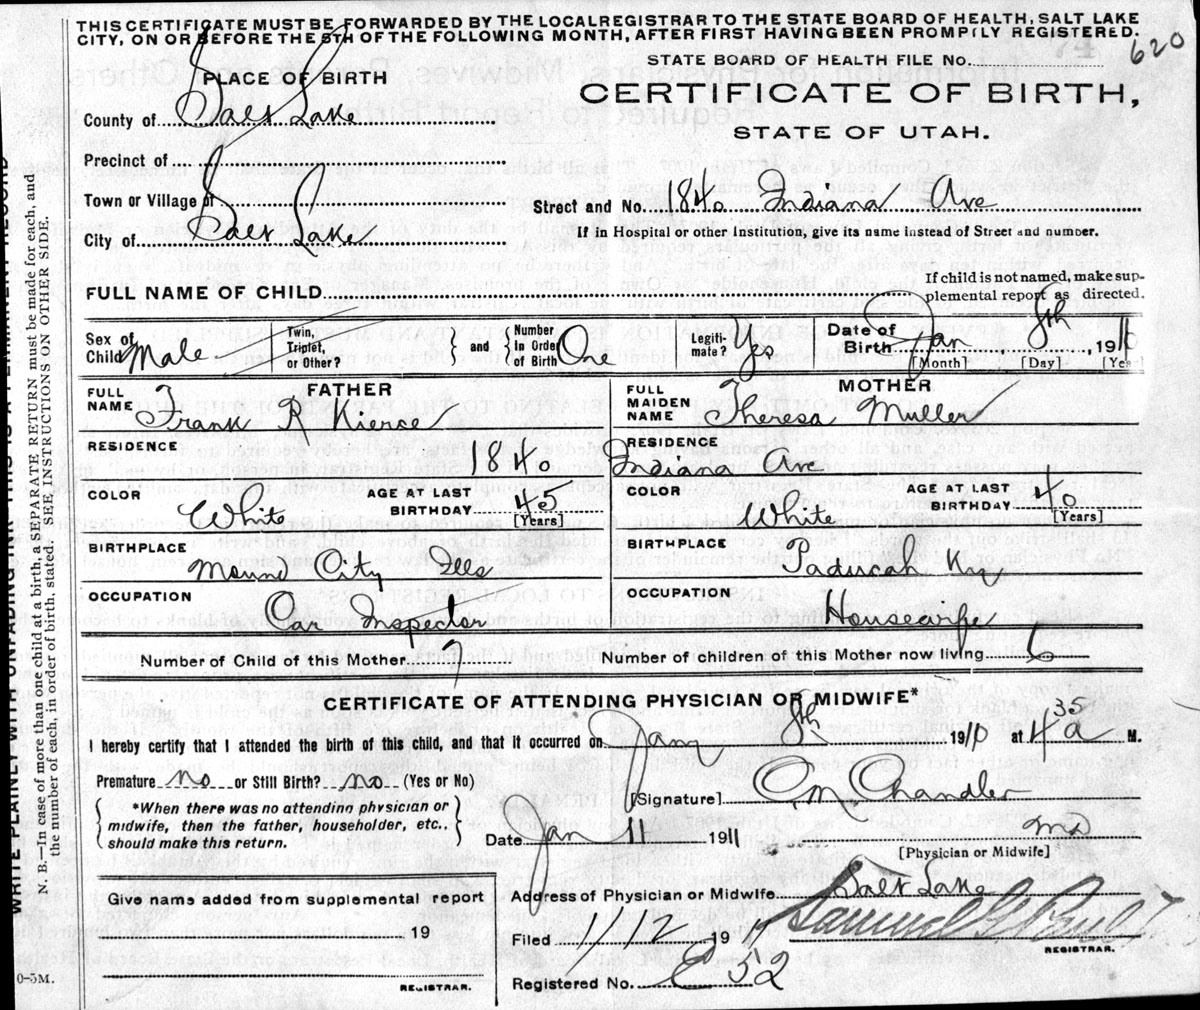 THIS CERTIFICATE MUST BE FORWARDED BY THE LOCALREGISTRAR TO THE STATE BOARD OF HEALTH, SALT LAKE
CITY, ON OR BEFORE THE 5TH OF THE FOLLOWING MONTH, AFTER FIRST HAVING BEEN PROMPTLY REGISTERED.
620
STATE BOARD OF HEALTH FILE No.
PLACE OF BIRTH
CERTIFICATE OF BIRTH,
STATE OF UTAH.
County of Salt Lake
Precinct of
Town or Village of
Street and No. 1840 Indiana Ave
City of Salt Lake
If in Hospital or other Institution, give its name instead of Street and number.
If child is not named, make sup-
plemental report as directed.
FULL NAME OF CHILD
Sex of Child Male
Twin, Triplet, or Other?
and
Number In Order of Birth One
Legiti- mate? Yes
Date of Birth Jan 8th, 1910
[Month] [Day] [Year]
FATHER
FULL NAME Frank R Kierce
MOTHER
FULL MAIDEN NAME Theresa Muller
RESIDENCE 1840
RESIDENCE Indiana Ave
COLOR White
AGE AT LAST BIRTHDAY 45
[Years]
COLOR White
AGE AT LAST BIRTHDAY 40
[Years]
BIRTHPLACE Mound City Ills
BIRTHPLACE Paducah Ky
OCCUPATION Car Inspector
OCCUPATION Housewife
Number of Child of this Mother 7
Number of children of this Mother now living 6
CERTIFICATE OF ATTENDING PHYSICIAN OR MIDWIFE*
I hereby certify that I attended the birth of this child, and that it occurred on Jany 8th 1910 at 4 35 a M.
Premature no or Still Birth? no (Yes or No)
*When there was no attending physician or
midwife, then the father, householder, etc.,
should make this return.
[Signature] C. M. Chandler
Date Jan 11 1911 MD
[Physician or Midwife]
Give name added from supplemental report
19
REGISTRAR.
Address of Physician or Midwife Salt Lake
Filed 1/12 19
REGISTRAR.
Registered No. 52
0-5M.
WRITE PLAINLY WITH UNFADING INK. THIS IS A PERMANENT RECORD
N. B.—In case of more than one child at a birth, a SEPARATE RETURN must be made for each, and
the number of each, in order of birth, stated. SEE INSTRUCTIONS ON OTHER SIDE.